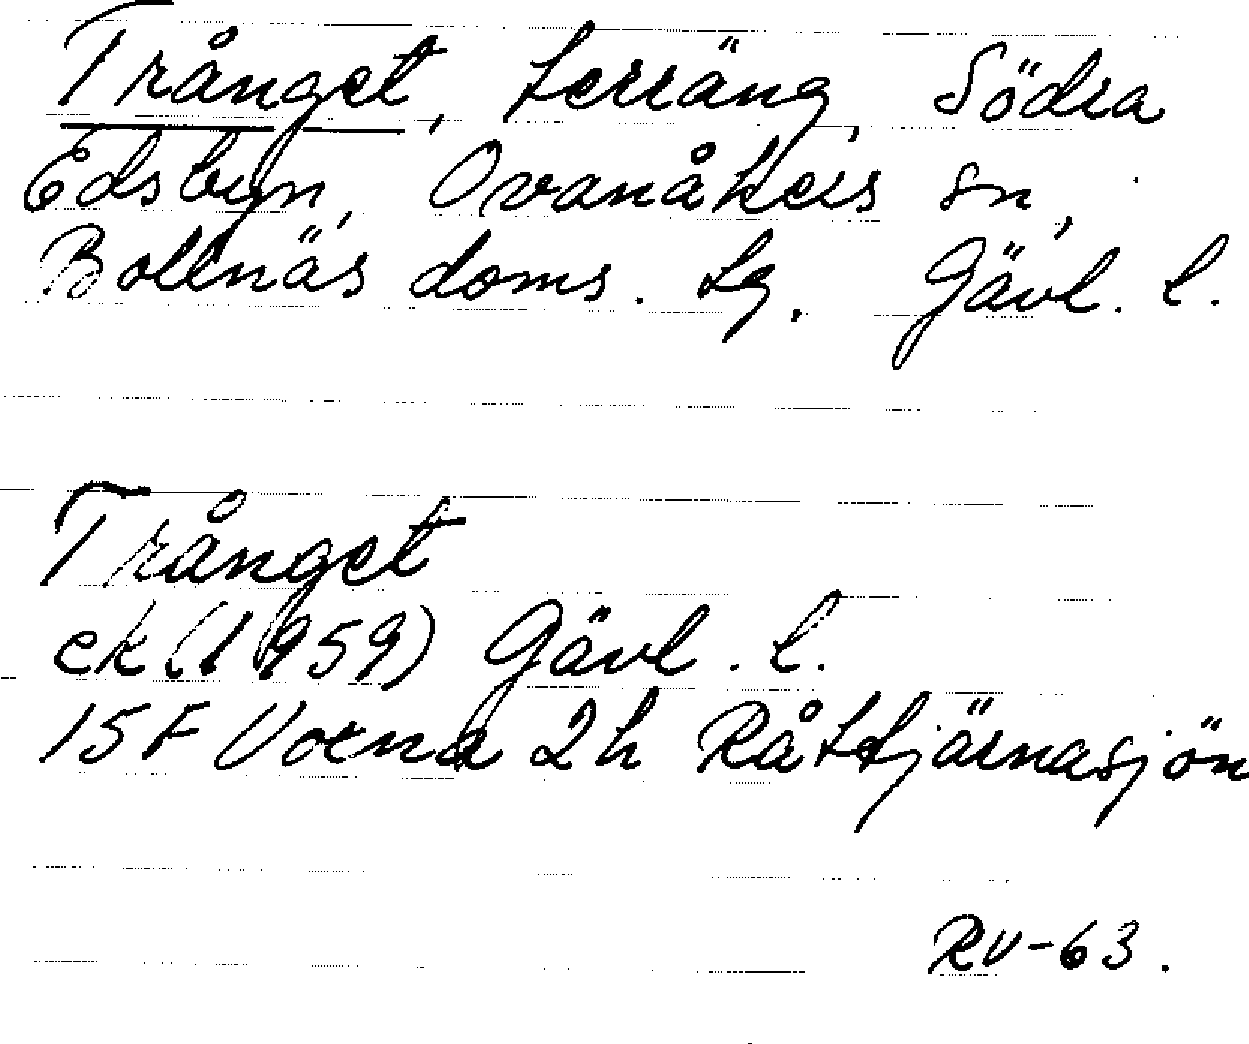 Trånget, terräng, Södra
Edsbyn, Ovanåkers sn,
Bollnäs doms. tg. Gävl. l.
Trånget
ek (1959) Gävl. l.
15F Voxna 2h Råttjärnasjön
RV-63.